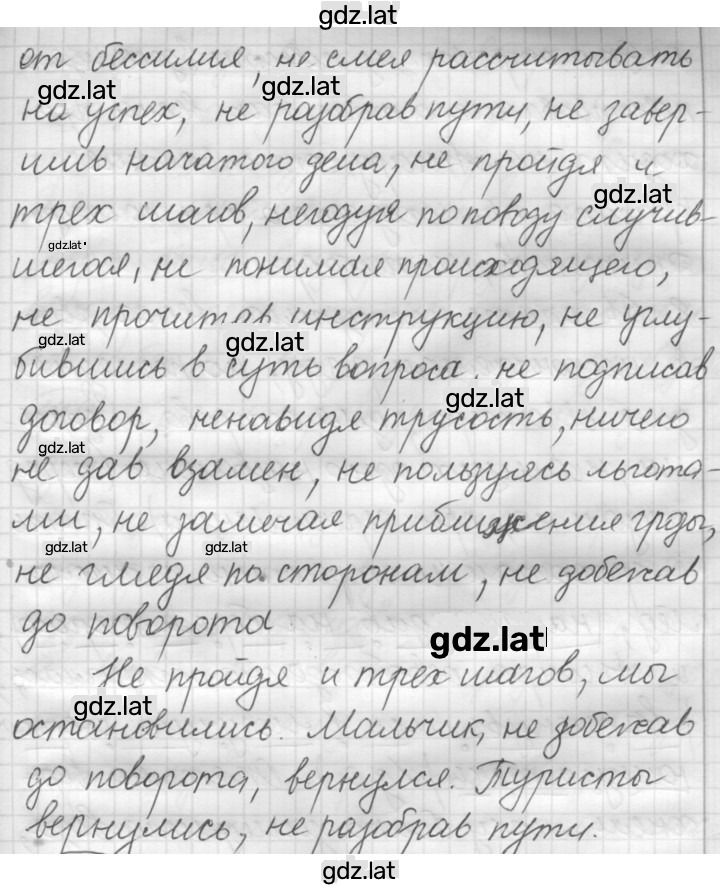 gdz.lat
от бессилия, не смея рассчитывать
gdz.lat
gdz.lat
на успех, не разобрав пути, не завер-
шив начатого дела, не пройдя и
gdz.lat
трех шагов, негодуя по поводу случив-
gdz.lat
шегося, не понимая происходящего,
не прочитав инструкцию, не углу-
gdz.lat
gdz.lat
бившись в суть вопроса. не подписав
gdz.lat
договор, ненавидя трусость, ничего
gdz.lat
не дав взамен, не пользуясь льгота-
ми, не замечая приближения грды,
gdz.lat
gdz.lat
не глядя по сторонам, не добежав
до поворота
gdz.lat
Не пройдя и трех шагов, мы
gdz.lat
остановились. Мальчик, не добежав
до поворота, вернулся. Туристы
вернулись, не разобрав пути.
gdz.lat